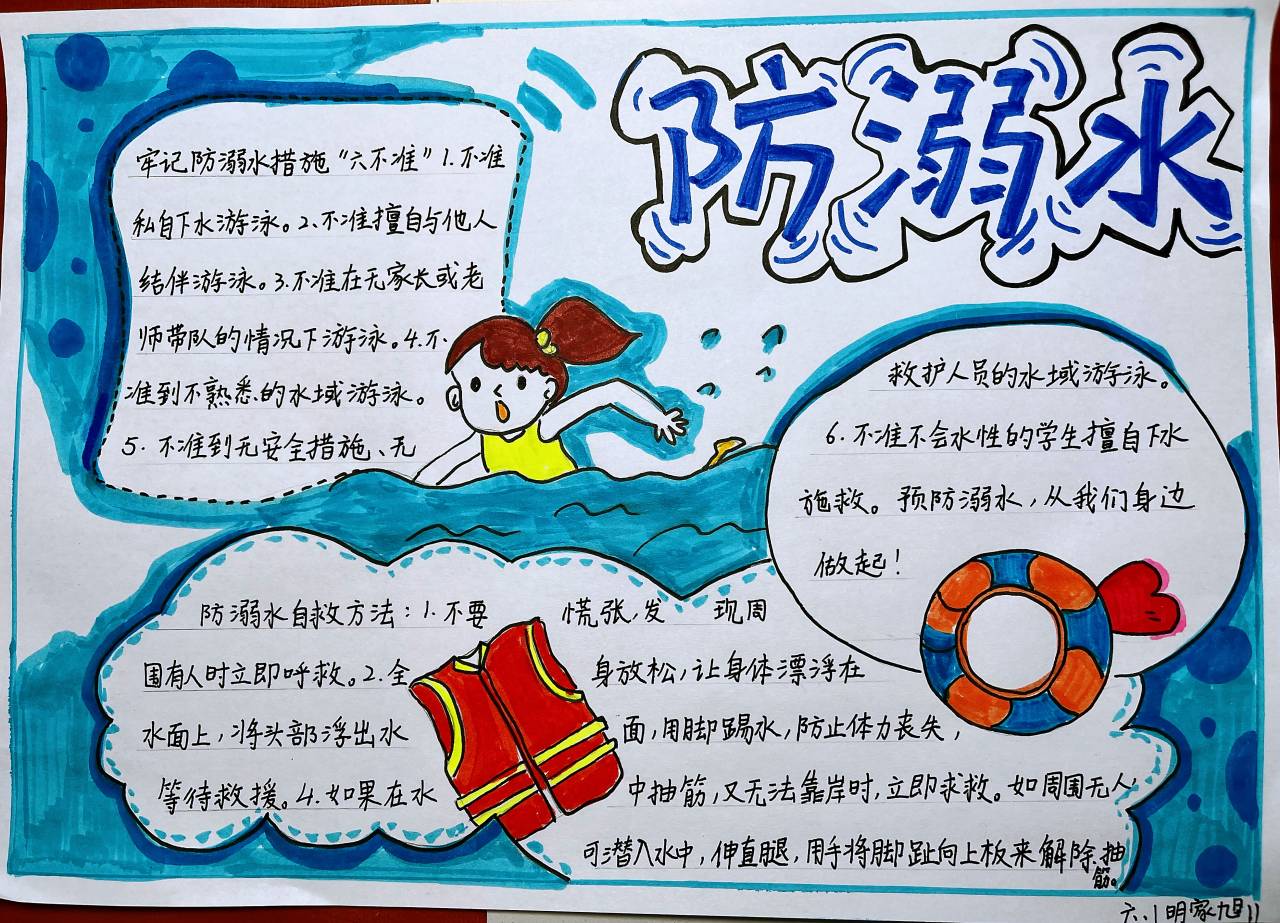 防溺水
牢记防溺水措施“六不准”1.不准
私自下水游泳。2.不准擅自与他人
结伴游泳。3.不准在无家长或老
师带队的情况下游泳。4.不
准到不熟悉的水域游泳。
5.不准到无安全措施、无
救护人员的水域游泳。
6.不准不会水性的学生擅自下水
施救。预防溺水,从我们身边
做起!
防溺水自救方法:1.不要慌张,发现周
围有人时立即呼救。2.全身放松,让身体漂浮在
水面上,将头部浮出水面,用脚踢水,防止体力丧失,
等待救援。4.如果在水中抽筋,又无法靠岸时,立即求救。如周围无人
可潜入水中,伸直腿,用手将脚趾向上板来解除抽
筋。
六.1明家旭11